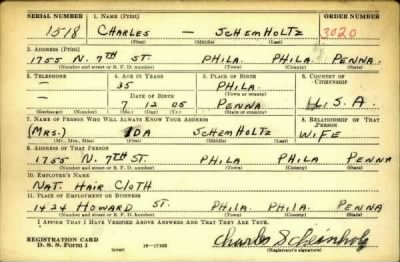 SERIAL NUMBER 1. NAME (Print) ORDER NUMBER
1518 CHARLES — SCHEMHOLTZ 3020
(First) (Middle) (Last)
2. ADDRESS (Print)
1755 N. 7TH ST. PHILA. PHILA. PENNA.
(Number and street or R. F. D. number) (Town) (County) (State)
3. TELEPHONE 4. AGE IN YEARS 5. PLACE OF BIRTH 6. COUNTRY OF CITIZENSHIP
— 35 PHILA.
DATE OF BIRTH (Town or county)
— 7 12 05 PENNA U.S.A.
(Exchange) (Number) (Mo.) (Day) (Yr.) (State or country)
7. NAME OF PERSON WHO WILL ALWAYS KNOW YOUR ADDRESS 8. RELATIONSHIP OF THAT PERSON
(MRS.) IDA SCHEMHOLTZ WIFE
(Mr., Mrs., Miss) (First) (Middle) (Last)
9. ADDRESS OF THAT PERSON
1755 N. 7TH ST. PHILA PHILA PENNA
(Number and street or R. F. D. number) (Town) (County) (State)
10. EMPLOYER'S NAME
NAT. HAIR CLOTH
11. PLACE OF EMPLOYMENT OR BUSINESS
1424 HOWARD ST. PHILA. PHILA. PENNA
(Number and street or R. F. D. number) (Town) (County) (State)
I AFFIRM THAT I HAVE VERIFIED ABOVE ANSWERS AND THAT THEY ARE TRUE.
REGISTRATION CARD
D. S. S. Form 1 (over) 16—17105 Charles Scheinholz
(Registrant's signature)